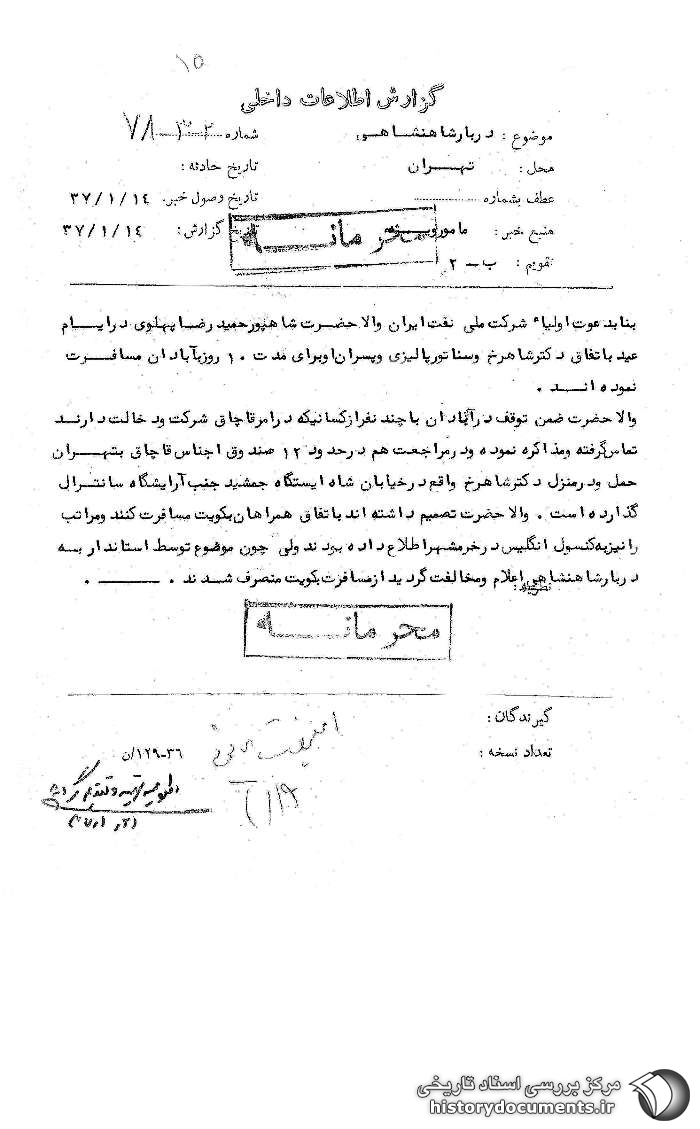 ۱۵
گزارش اطلاعات داخلی
موضوع : دربارشاهنشاهی شماره ۷۸
محل : تهران تاریخ حادثه :
عطف بشماره تاریخ وصول خبر: ۳۷/۱/۱۴
منبع خبر : مامور تاریخ گزارش: ۳۷/۱/۱۴
محرمانه
تقویم : ب – ۲
بنابدعوت اولیاء شرکت ملی نفت ایران والاحضرت شاهپورحمیدرضاپهلوی درایام
عید باتفاق دکترشاهرخ وسناتورپالیزی وپسران اوبرای مدت ۱۰ روزبآبادان مسافرت
نموده اند .
والاحضرت ضمن توقف درآبادان باچند نفرازکسانیکه درامرقاچاق شرکت ودخالت دارند
تماس گرفته ومذاکره نموده ودرمراجعت هم درحدود ۱۲ صندوق اجناس قاچاق بتهران
حمل ودرمنزل دکترشاهرخ واقع درخیابان شاه ایستگاه جمشید جنب آرایشگاه سانترال
گذارده است . والاحضرت تصمیم داشته اند باتفاق همراهان بکویت مسافرت کنند ومراتب
را نیزبه کنسول انگلیس درخرمشهر اطلاع داده بودند ولی چون موضوع توسط استاندار به
دربارشاهنشاهی اعلام ومخالفت گردید ازمسافرت بکویت منصرف شدند .
محرمانه
گیرندگان :
تعداد نسخه :
۳۶–۱۲۹/ن
مرکز بررسی اسناد تاریخی
historydocuments.ir